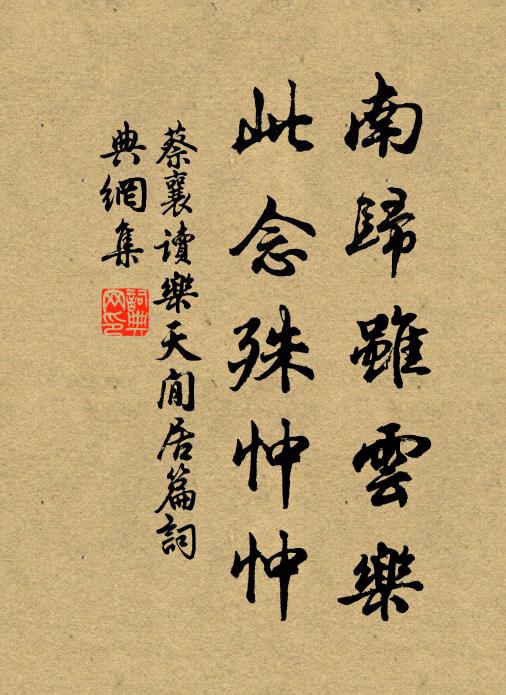 南歸雖雲樂
此念殊忡忡
蔡襄讀樂天閒居篇詞
典網集
詞典網印